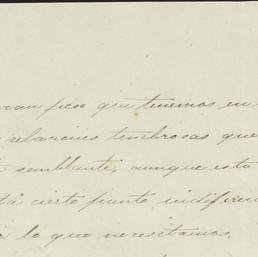 peso que tenemos en
relaciones tenebrosas que
semblante, aunque esto
cierto punto indiferen
lo que necesitamos.